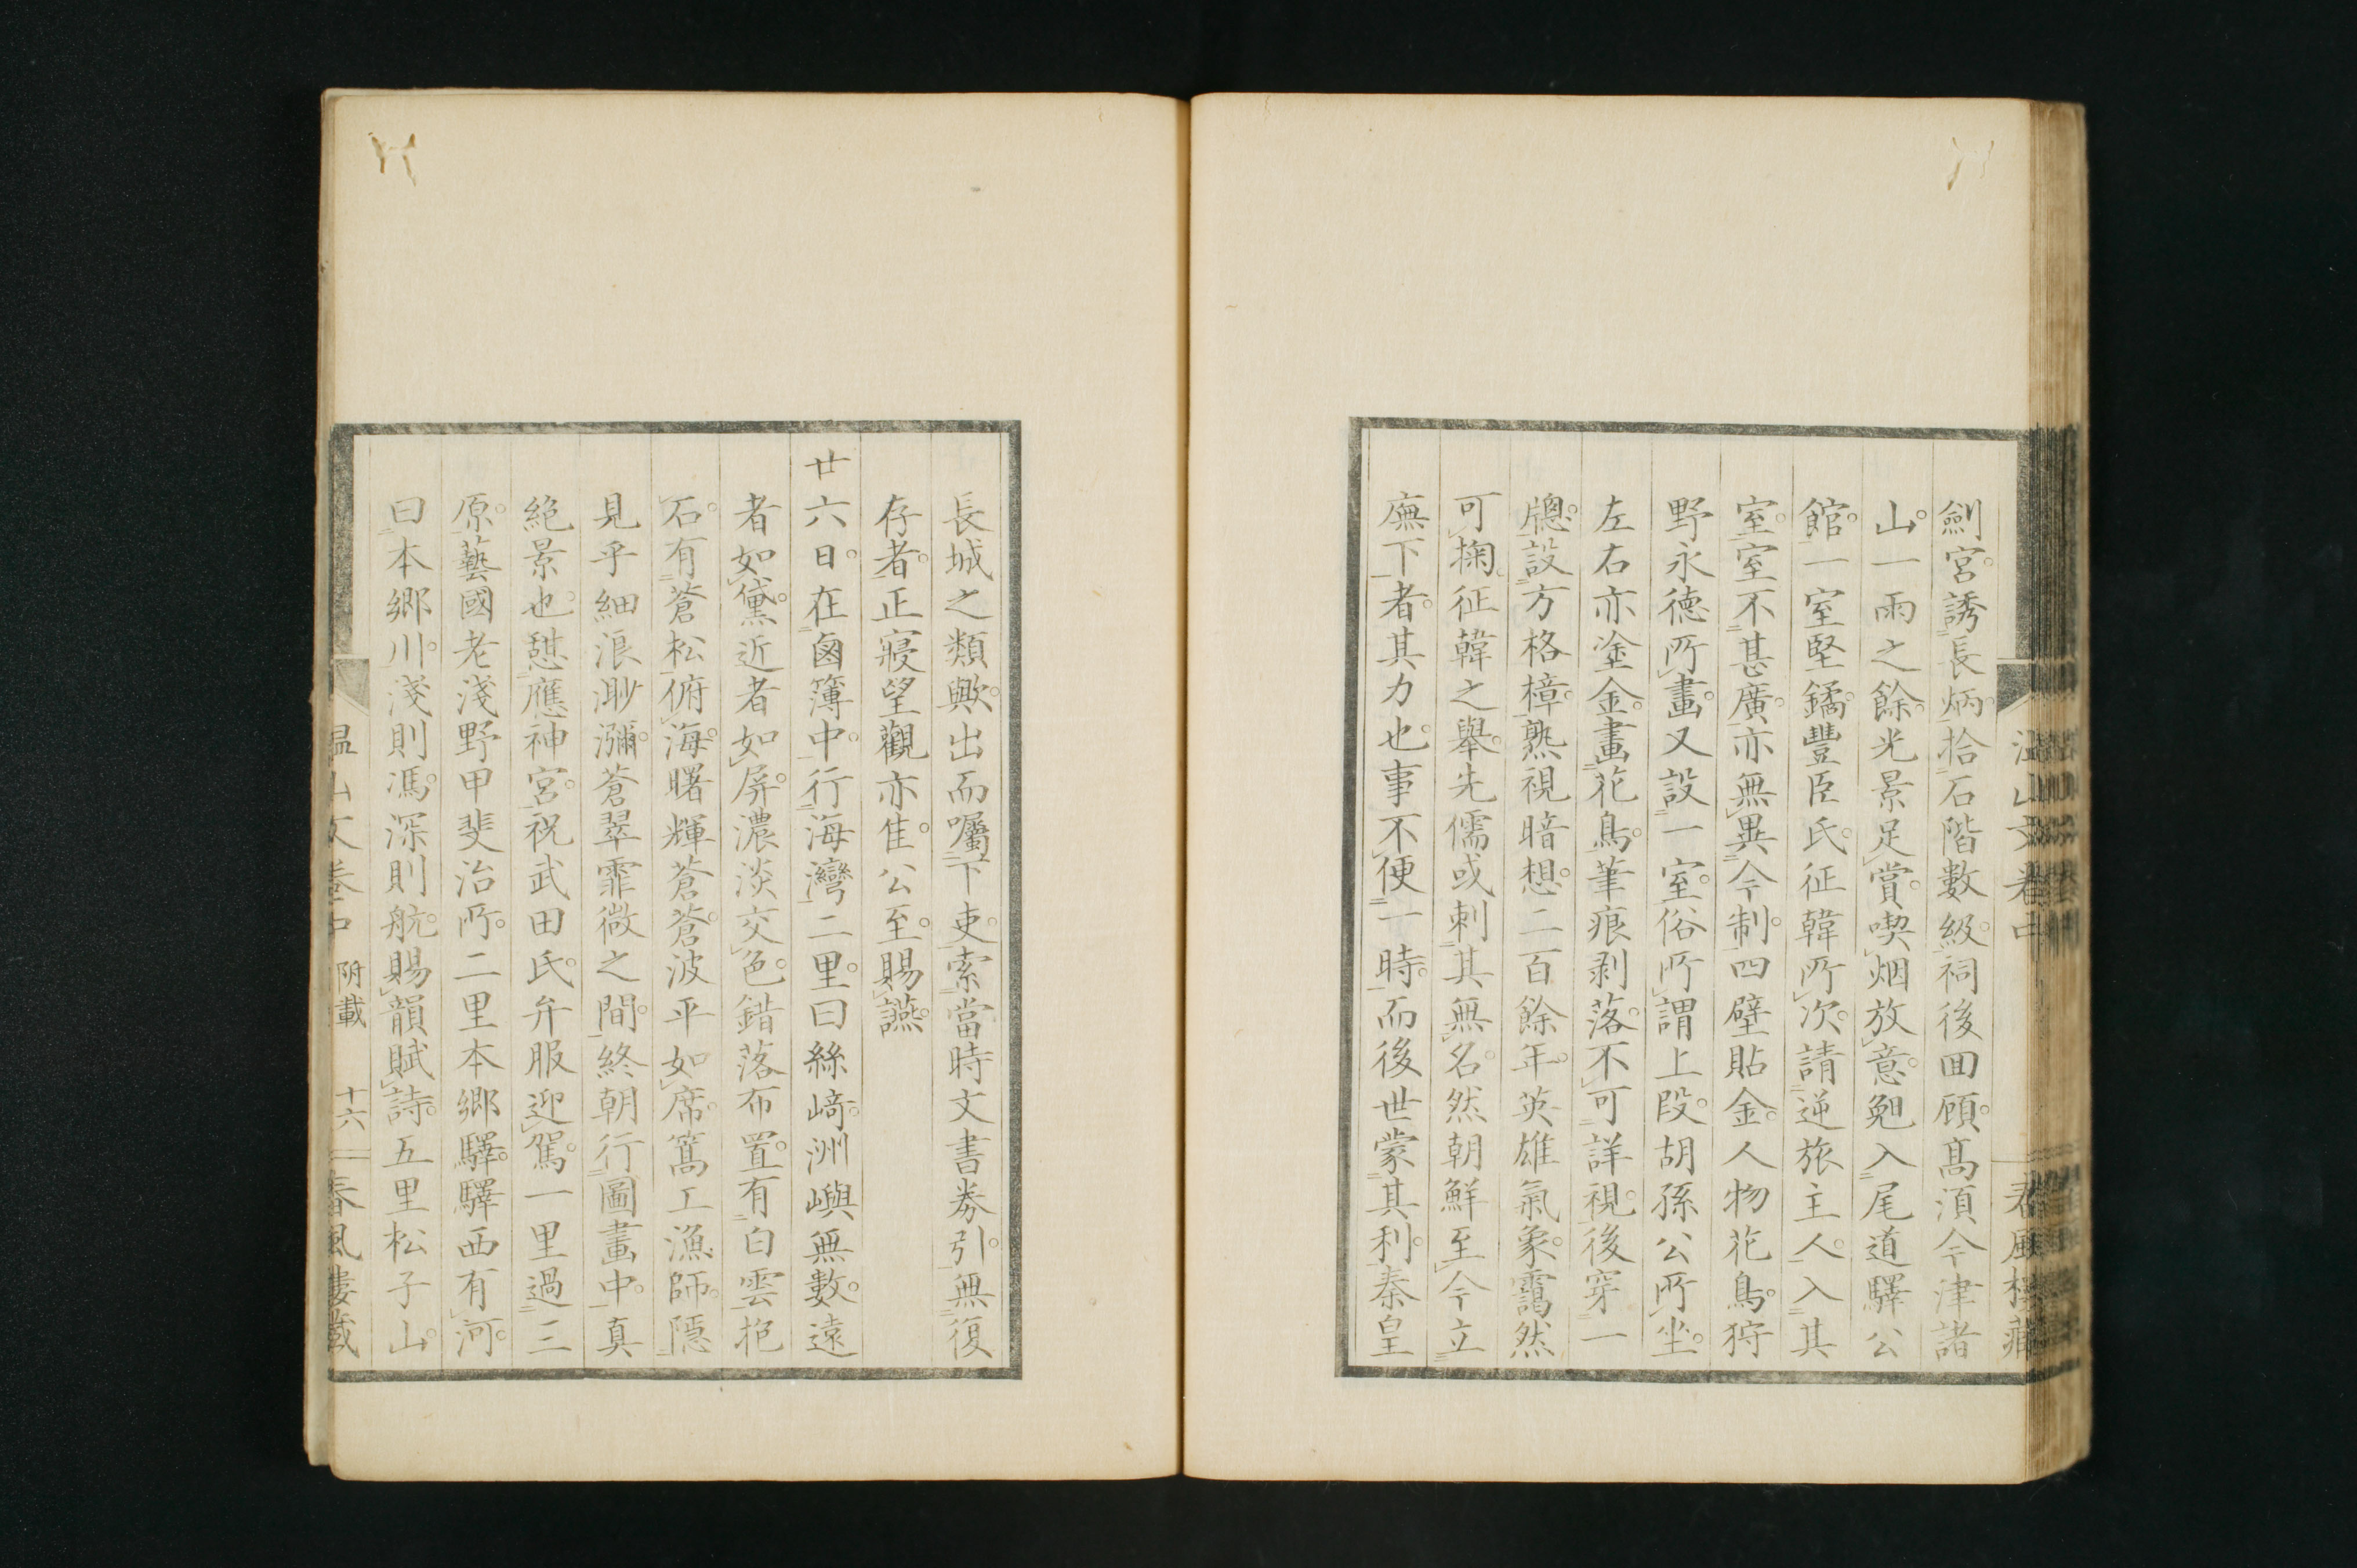 劍宮。誘長炳。拾石階數級。祠後回顧。髙湏今津諸
山。一雨之餘。光景足賞。喫烟放意。兜入尾道驛公
館。一室堅鐍。豐臣氏。征韓所次。請逆旅主人。入其
室。室不甚廣。亦無異今制。四壁貼金。人物花鳥。狩
野永徳所畫。又設一室。俗所謂上段。胡孫公所坐。
左右亦塗金。畫花鳥。筆痕剥落。不可詳視。後穿一
牎。設方格樟。熟視暗想。二百餘年。英雄氣象。靄然
可掬。征韓之舉。先儒或刺其無名。然朝鮮至今立
廡下者。其力也。事不便一時。而後世蒙其利。秦皇
温山文卷中
春風樓藏
長城之類歟。出而囑下吏。索當時文書劵引。無復
存者。正寢望觀亦佳。公至。賜讌。
廿六日。在鹵簿中。行海灣二里。曰絲﨑。洲嶼無數。遠
者如黛。近者如屏。濃淡交色。錯落布置。有白雲抱
石。有蒼松俯海。曙輝蒼蒼。波平如席。篙工漁師。隱
見乎細浪渺瀰。蒼翠霏微之間。終朝行圖畫中。真
絶景也。憇應神宮。祝武田氏。弁服迎駕。一里過三
原。藝國老淺野甲斐治所。二里本郷驛。驛西有河。
曰本郷川。淺則馮。深則航。賜韻賦詩。五里松子山。
温山文卷中 附載 十六 春風樓藏